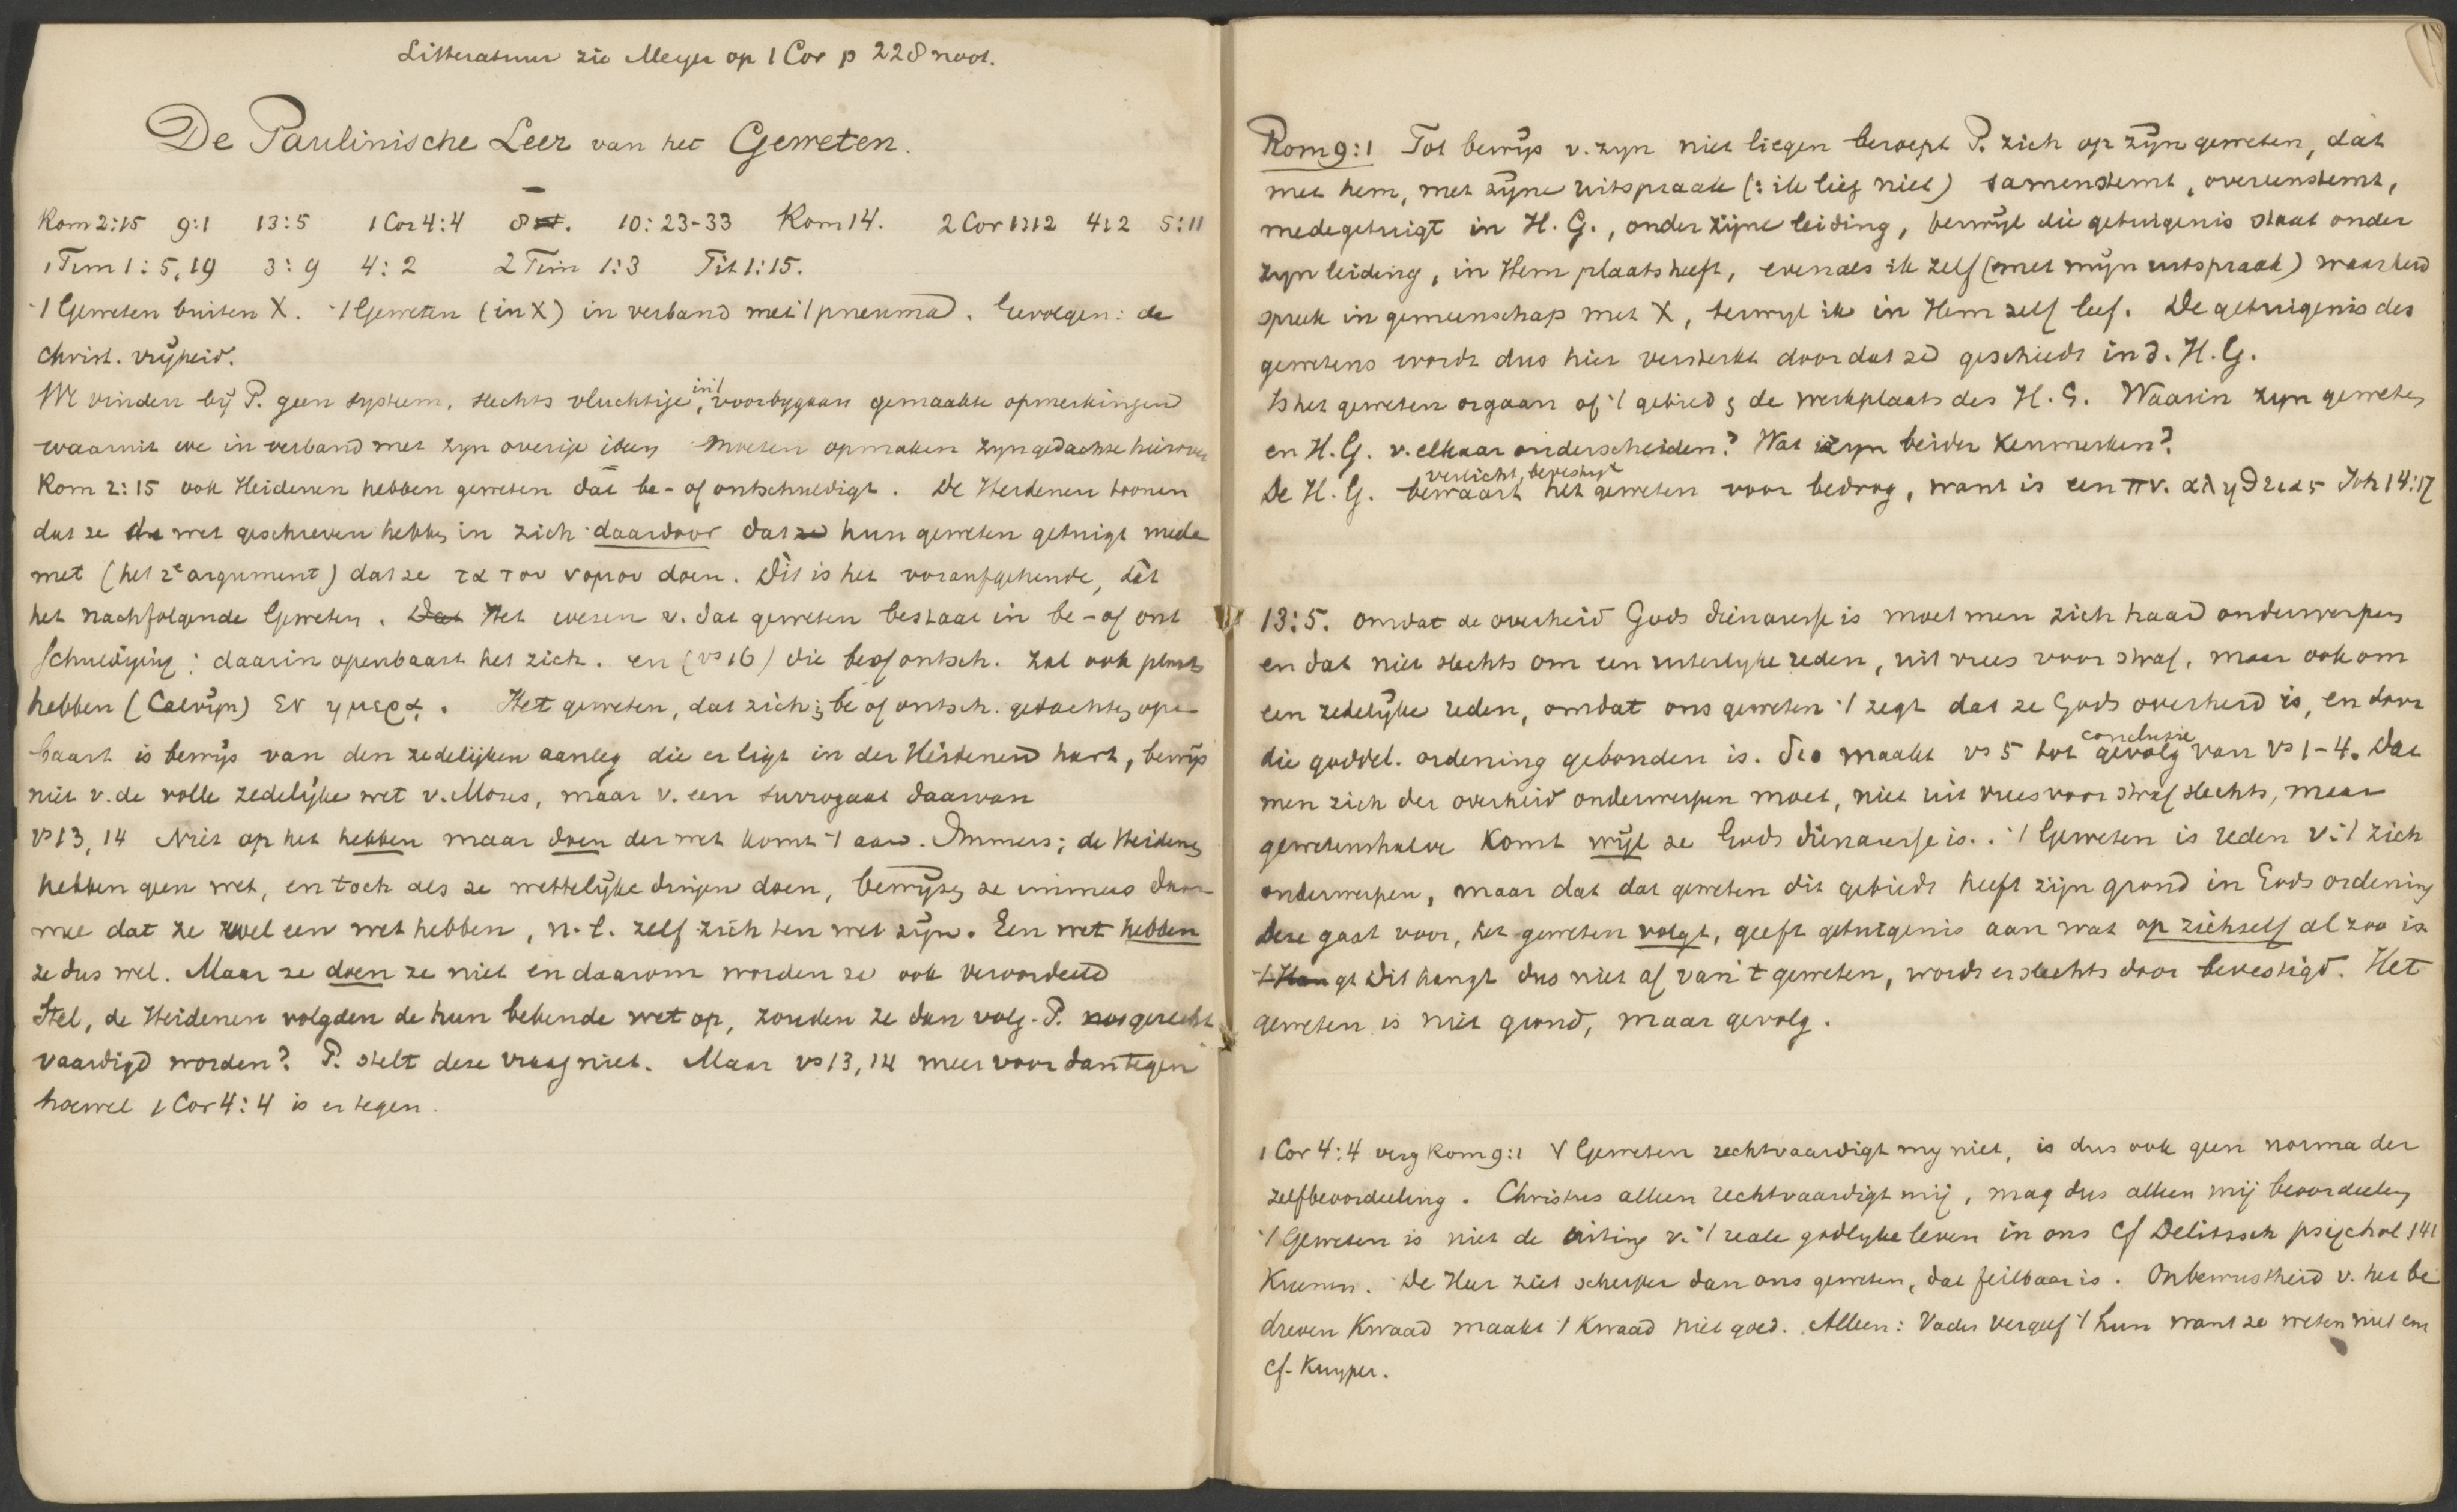 Litteratuur zie Meyer op 1 Cor p 228 noot.
De Paulinische Leer van het Geweten.
Rom 2:15 9:1 13:5 1 Cor 4:4 8 10:23-33 Rom 14. 2 Cor 1:12 4:2 5:11
1 Tim 1:5,19 3:9 4:2 2 Tim 1:3 Tit 1:15.
't Geweten buiten X. 't Geweten (in X) in verband met 't pneuma. Gevolgen: de
Christ. vrijheid.
We vinden bij P. geen systeem, slechts vluchtige, in 't voorbygaan gemaakte opmerkingen
waaruit we in verband met zyn overige ideen moeten opmaken zyn gedachte hierover
Rom 2:15 ook Heidenen hebben geweten dat be- of ontschuldigt. De Heidenen toonen
dat ze de wet geschreven hebben in zich daardoor dat ze hun geweten getuigt mede
met (het 2e argument) dat ze τα του νομου doen. Dit is het voorafgehende, dat
het nachfolgende Geweten. Dat Het wezen v. dat geweten bestaat in be- of ont
schuldiging: daarin openbaart het zich. en (vs 16) die be of ontsch. zal ook plaats
hebben (Calvijn) εν ημερα. Het geweten, dat zich in be of ontsch. gedachten open
baart is bewijs van den zedelijken aanleg die er ligt in der Heidenen hart, bewijs
niet v. de volle zedelijke wet v. Mozes, maar v. een surrogaat daarvan
vs 13, 14 Niet op het hebben maar doen der wet komt 't aan. Immers; de Heidenen
hebben geen wet, en toch als ze wettelijke dingen doen, bewijzen ze immers daar
mee dat ze wel een wet hebben, n.l. zelf zich ten wet zijn. Een wet hebben
ze dus wel. Maar ze doen ze niet en daarom worden ze ook veroordeeld
Stel, de Heidenen volgden de hun bekende wet op, zouden ze dan volg. P. gerecht
vaardigd worden? P. stelt deze vraag niet. Maar vs 13, 14 meer voor dan tegen
hoewel 1 Cor 4:4 is er tegen.
Rom 9:1 Tot bewijs v. zyn niet liegen beroept P. zich op zijn geweten, dat
met hem, met zijne uitspraak (: ik lieg niet) samenstemt, overeenstemt,
medegetuigt in H. G., onder zijne leiding, terwijl die getuigenis staat onder
zyn leiding, in Hem plaats heeft, evenals ik zelf (met mijn uitspraak) waarheid
spreek in gemeenschap met X, terwyl ik in Hem zelf leef. De getuigenis des
gewetens wordt dus hier versterkt doordat ze geschiedt in d. H. G.
Is het geweten orgaan of 't gebied en de werkplaats des H. G. Waarin zyn geweten
en H. G. v. elkaar onderscheiden? Wat zyn beider kenmerken?
verlicht, bevestigt
De H. G. bewaart het geweten voor bedrog, want is een πν. αληθειας Joh 14:17
13:5. omdat de overheid Gods dienaresse is moet men zich haar onderwerpen
en dat niet slechts om een uiterlyke reden, uit vrees voor straf, maar ook om
een zedelijke reden, omdat ons geweten 't zegt dat ze Gods overheid is, en door
conclusie
die goddel. ordening gebonden is. διο maakt vs 5 tot gevolg van vs 1-4. Dat
men zich der overheid onderwerpen moet, niet uit vrees voor straf slechts, maar
gewetenshalve komt wijl ze Gods dienaresse is. 't Geweten is reden v. 't zich
onderwerpen, maar dat dat geweten dit gebiedt heeft zijn grond in Gods ordening
Deze gaat voor, het geweten volgt, geeft getuigenis aan wat op zichzelf al zoo is
't Hangt Dit hangt dus niet af van 't geweten, wordt er slechts door bevestigd. Het
geweten is niet grond, maar gevolg.
1 Cor 4:4 verg Rom 9:1 't Geweten rechtvaardigt my niet, is dus ook geen norma der
zelfbeoordeeling. Christus alleen rechtvaardigt mij, mag dus alleen mij beoordeelen
't Geweten is niet de uiting v. 't reale godlyke leven in ons Cf Delitzsch psychol 141
Krumm. De Heer ziet scherper dan ons geweten, dat feilbaar is. Onbewustheid v. het be
dreven kwaad maakt 't kwaad niet goed. Alleen: Vader vergeef 't hun want ze weten niet enz
cf. Kuyper.